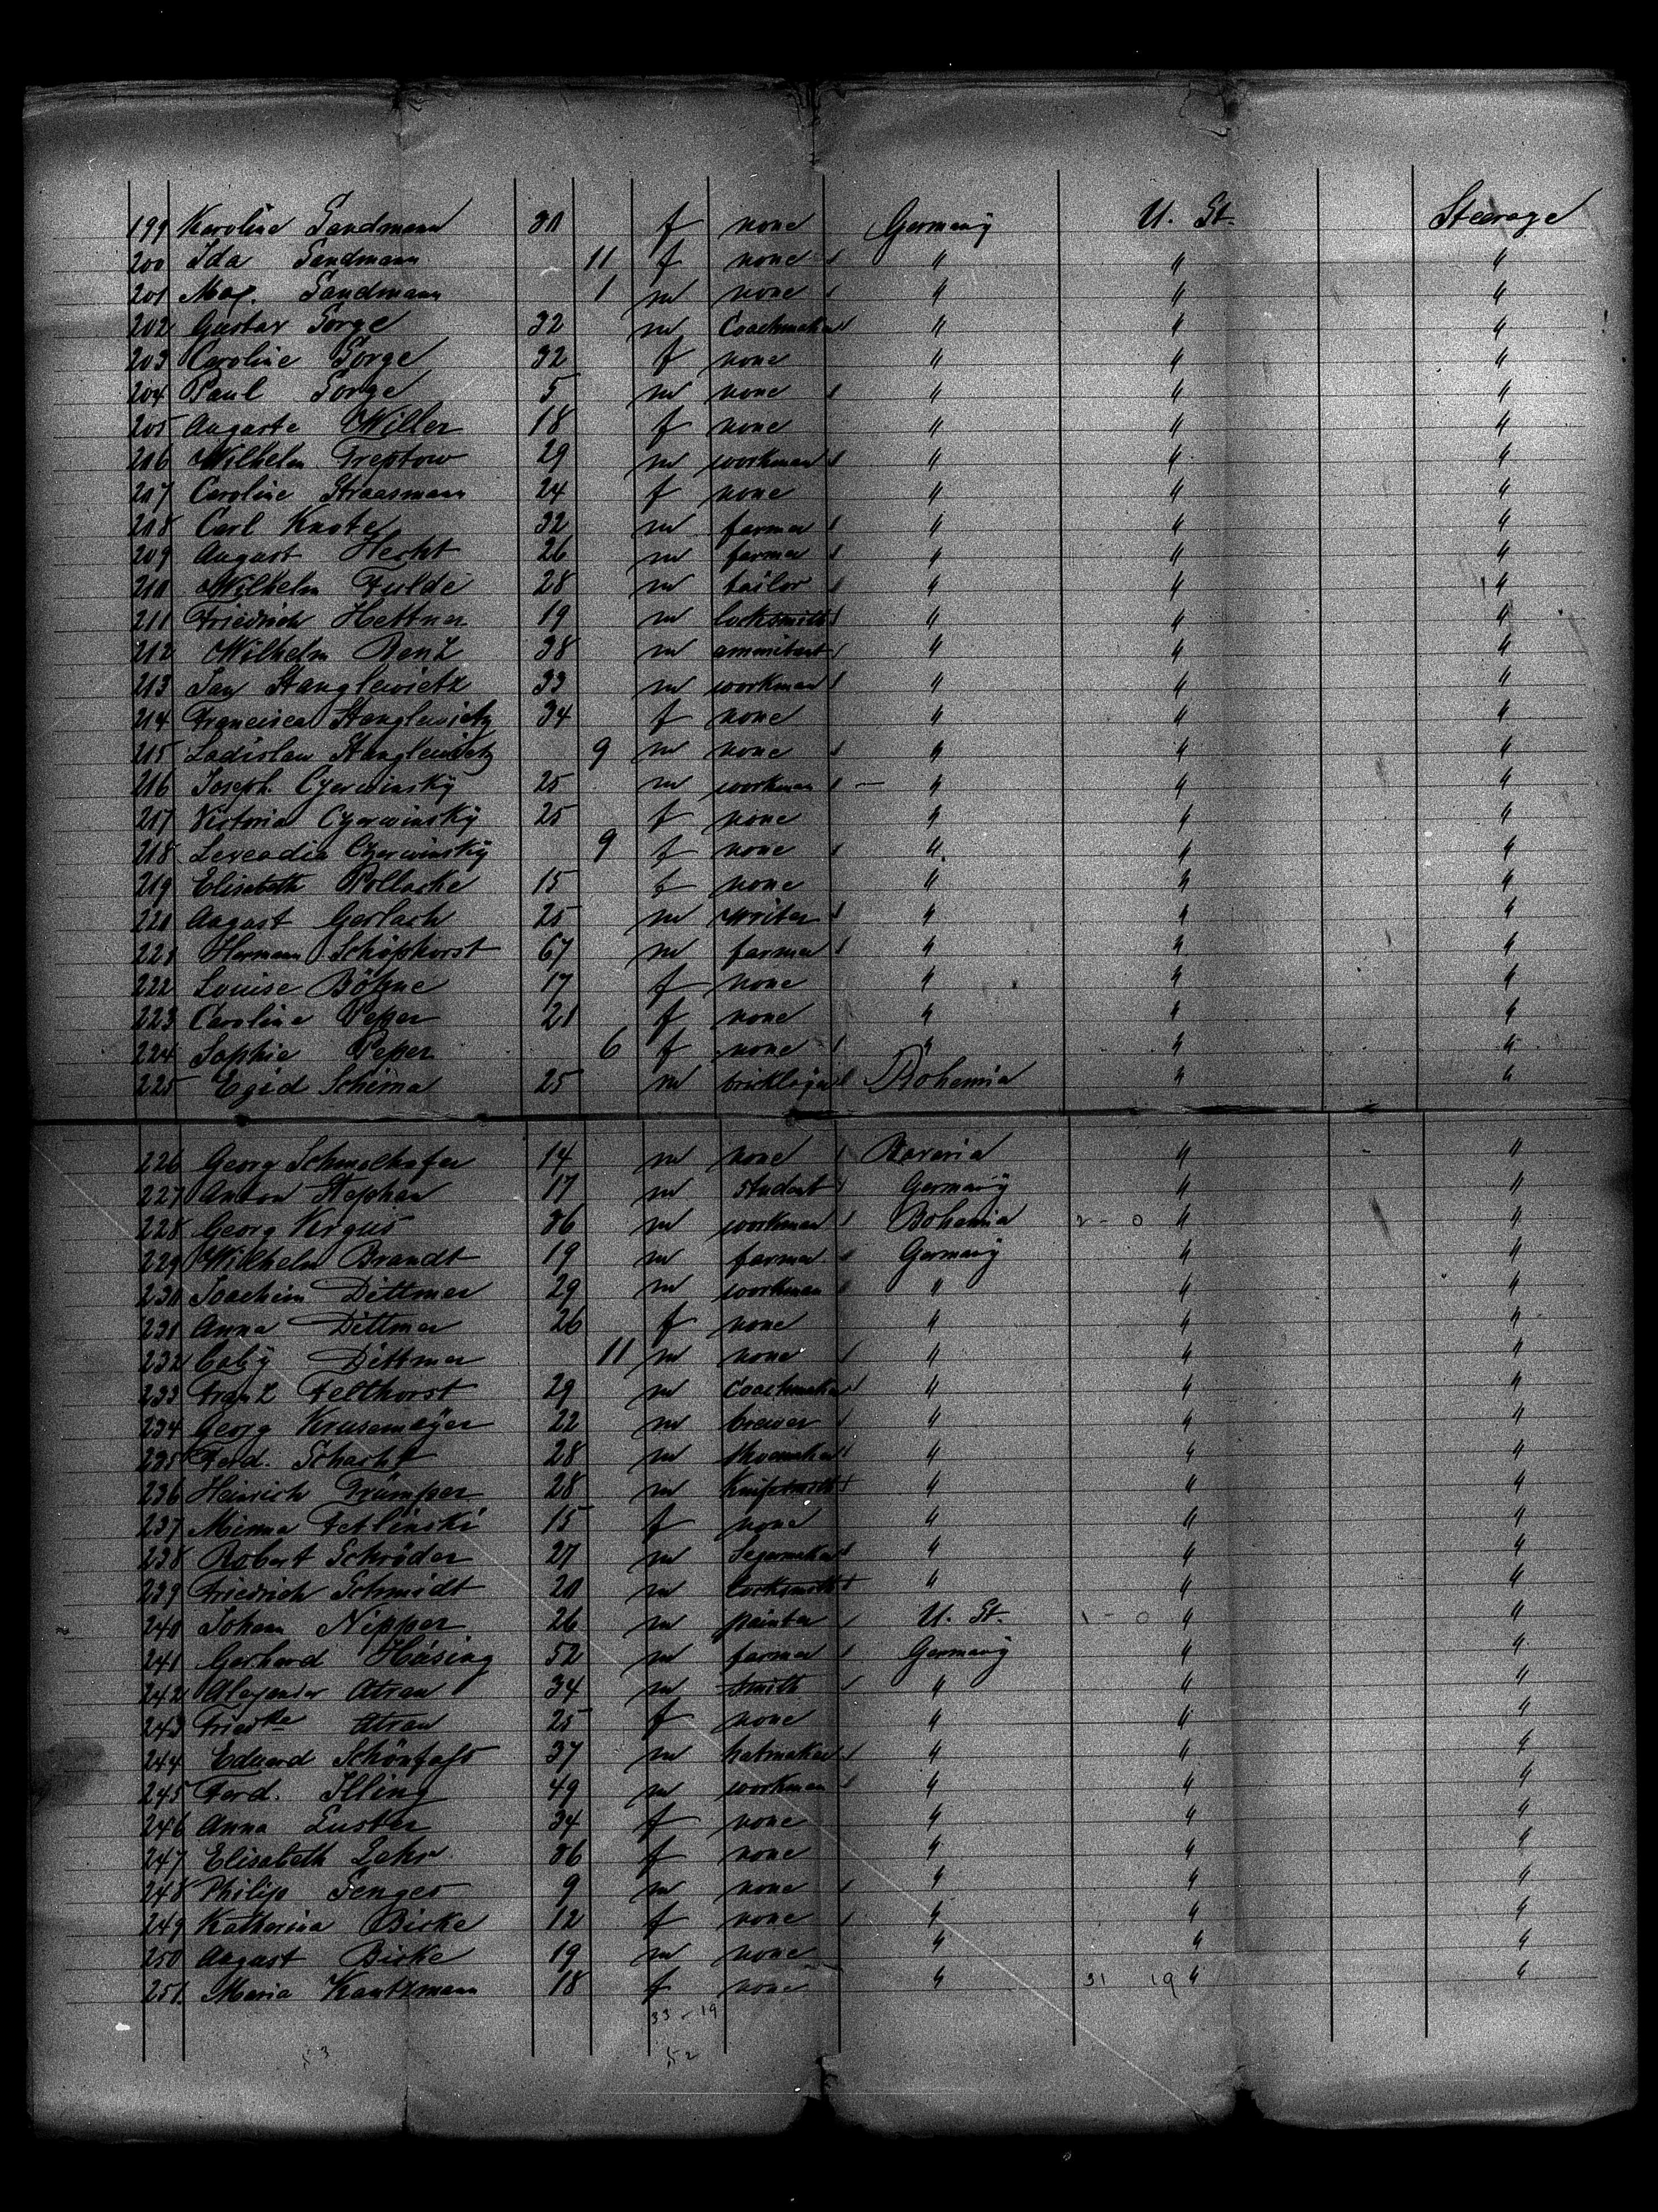 199 Karoline Sandmann 30 f none Germany U. St. Steerage
200 Ida Sandmann 11 f none " " "
201 Max. Sandmann 1 m none " " "
202 Gustav Sorge 32 m Coachmaker " " "
203 Caroline Sorge 32 f none " " "
204 Paul Sorge 5 m none " " "
205 Auguste Willer 18 f none " " "
206 Wilhelm Treptow 29 m workman " " "
207 Caroline Straasmann 24 f none " " "
208 Carl Knote 32 m farmer " " "
209 August Hecht 26 m farmer " " "
210 Wilhelm Fulde 28 m tailor " " "
211 Friedrich Hettner 19 m locksmith " " "
212 Wilhelm Benz 38 m " " "
213 Jan Stanglewietz 33 m workman " " "
214 Francisca Stanglewietz 34 f none " " "
215 Ladislau Stanglewietz 9 m none " " "
216 Joseph. Czerwinsky 25 m workman — " " "
217 Victoria Czerwinsky 25 f none " " "
218 Leocadia Czerwinsky 9 f none " " "
219 Elisabeth Pollacke 15 f none " " "
220 August Gerlach 25 m writer " " "
221 Hermann Schöphorst 67 m farmer " " "
222 Louise Böhne 17 f none " " "
223 Caroline Peper 21 f none " " "
224 Sophie Peper 6 f none " " "
225 Egid Schema 25 m bricklayer Bohemia " "
226 Georg Schmalhofer 14 m none Bavaria " "
227 Anton Stephan 17 m student Germany " "
228 Georg Kirgus 36 m workman Bohemia 2 - 0 " "
229 Wilhelm Brandt 19 m farmer Germany " "
230 Joachim Dittmer 29 m workman " " "
231 Anna Dittmer 26 f none " " "
232 baby Dittmer 11 m none " " "
233 Franz Felthorst 29 m Coachmaker " " "
234 Georg Krusemeyer 22 m brewer " " "
235 Ferd. Schacht 28 m shoemaker " " "
236 Heinrich Trümper 28 m Knifesmith " " "
237 Minna Fetlinski 15 f none " " "
238 Robert Schröder 27 m Segarmaker " " "
239 Friedrich Schmidt 20 m locksmith " " "
240 Johann Nipper 26 m painter U. St. 1 - 0 " "
241 Gerhard Häsing 52 m farmer Germany " "
242 Alexander Atran 34 m smith " " "
243 Friedke Atran 25 f none " " "
244 Eduard Schönfass 37 m hatmaker " " "
245 Ferd. Illing 49 m workman " " "
246 Anna Luster 34 f none " " "
247 Elisabeth Lehr 36 f none " " "
248 Philip Senges 9 m none " " "
249 Katherina Bicke 12 f none " " "
250 August Bicke 19 m none " " "
251 Maria Kautzmann 18 f none " 31 19 " "
33 - 19
53 52